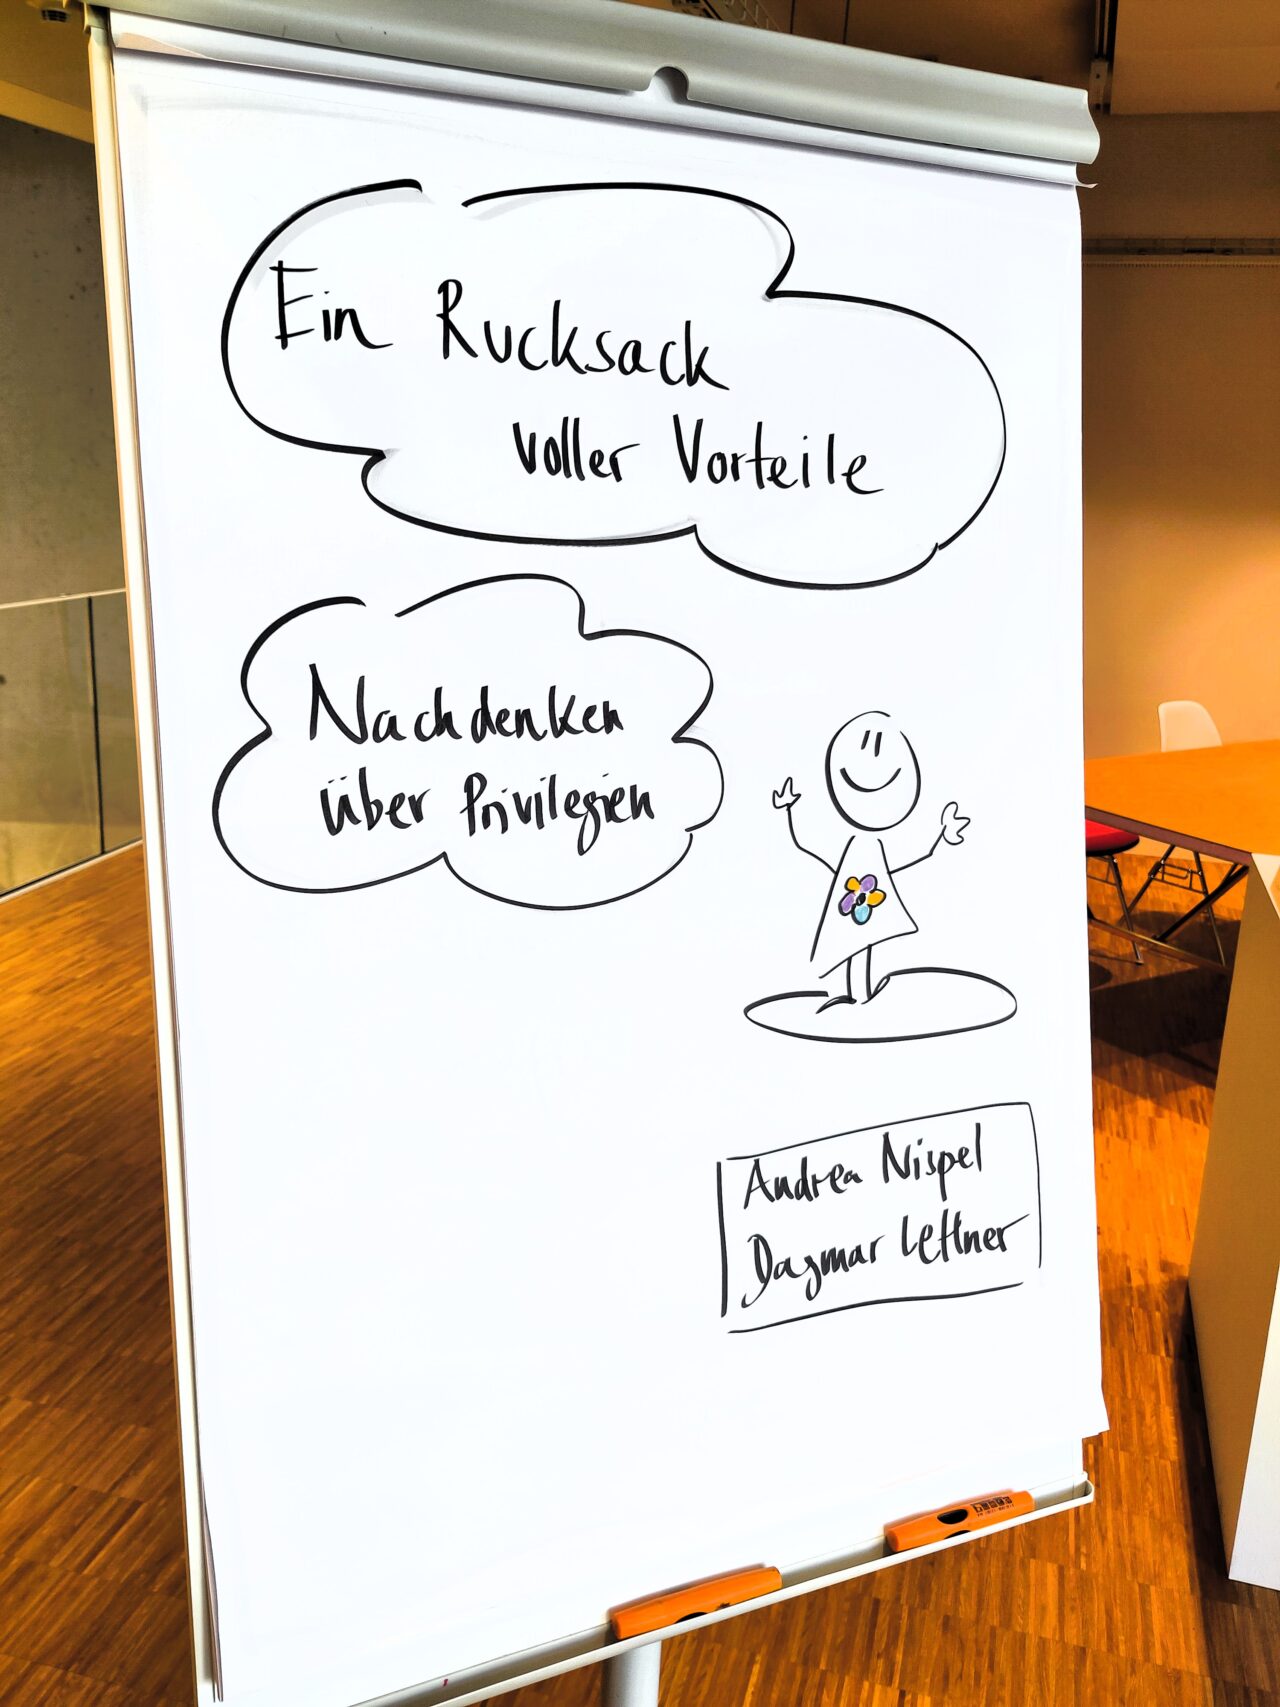 Ein Rucksack
voller Vorteile
Nachdenken
über Privilegien
Andrea Nispel
Dagmar Lettner